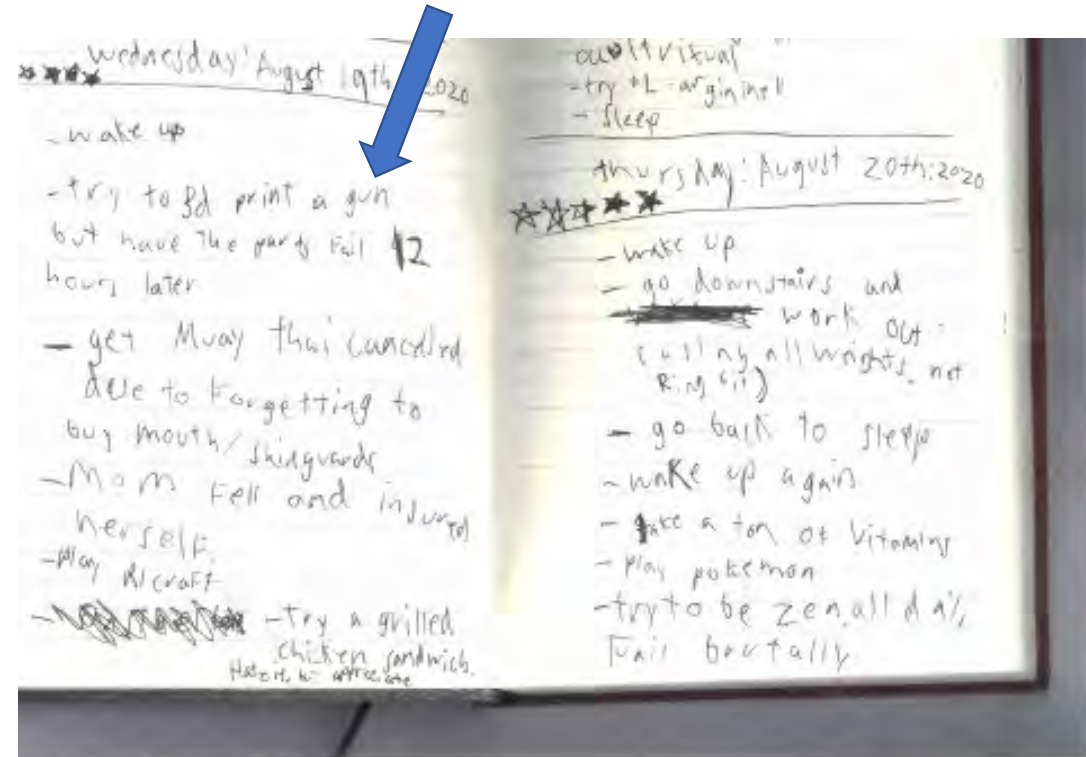 Wednesday: August 19th 2020
- wake up
- try to 3d print a gun
but have the parts fail 12
hours later
- get Muay thai canceled
due to forgetting to
buy mouth/shinguards
- Mom fell and injured
herself
- Play
- try a grilled
chicken sandwich.
ritual
- try +L-arginine
- sleep
thursday: August 20th: 2020
- wake up
- go downstairs and
work out.
not
- go back to sleep
- wake up again
- take a ton of vitamins
- play pokemon
- try to be zen, all day,
fail brutally